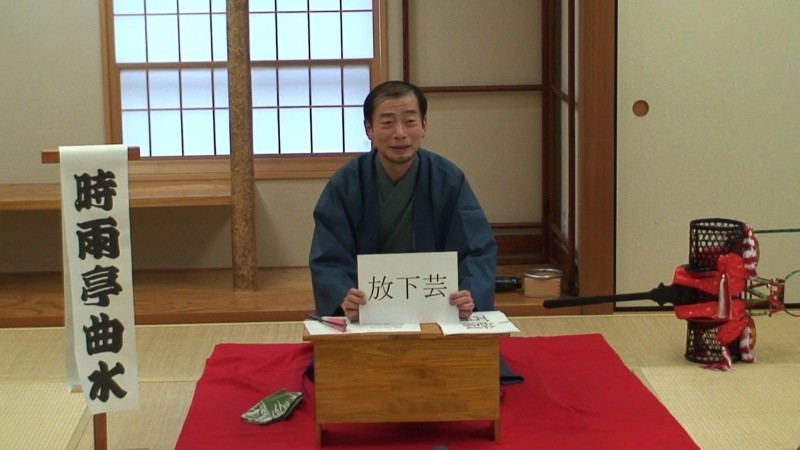 時雨亭曲水
放下芸